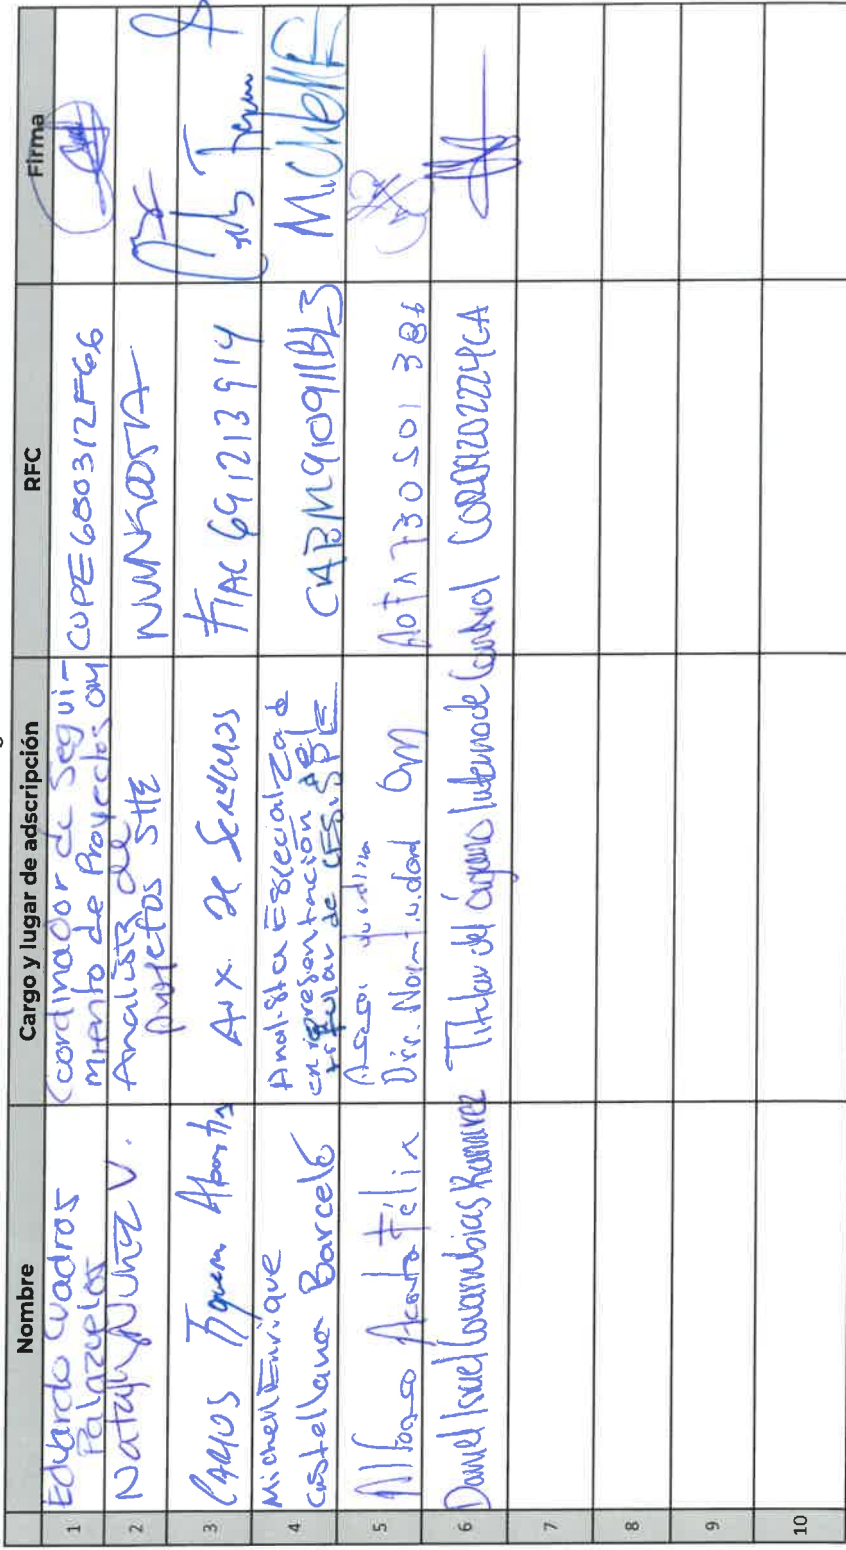 Nombre Cargo y lugar de adscripción RFC Firma
1 Eduardo Cuadros Palazuelos
Coordinador de Segui-
miento de Proyectos OM
CUPE680312F66
2 Nataly Nuñez V.
Analista de
Proyectos SHE
3 Carlos
Aux. de Servicios
691213914
4 Michell Enrique
Castellanos Barceló
Analista Especializado
en representación del
titular de CESISPE
CABM910911BL3
Michelle
5 Alfonso Acosta Félix
Dir. Normatividad OM
AOFA730501386
6 Daniel Israel Covarrubias Ramirez
Titular del Órgano Interno de Control
7
8
9
10